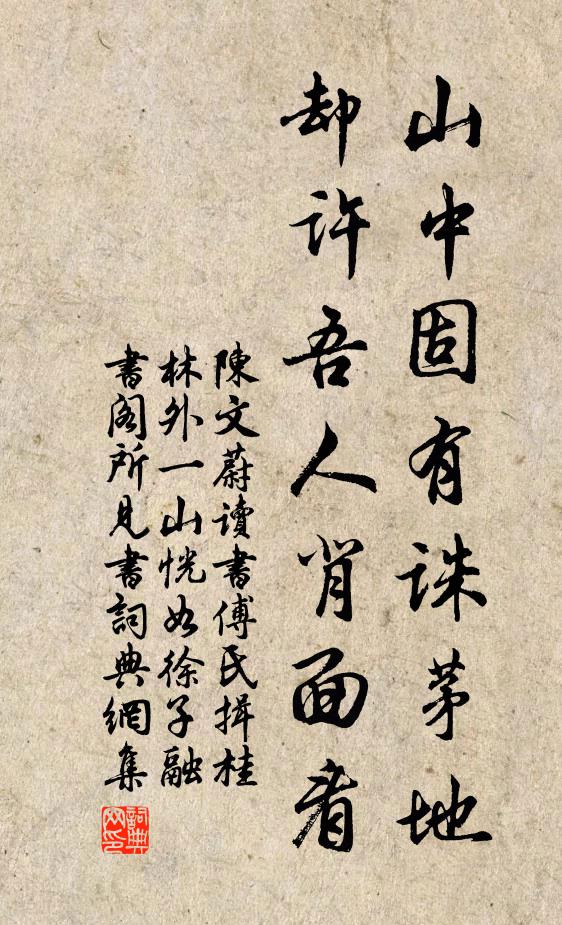 山中固有誅茅地
却許吾人背面看
陳文蔚讀書傅氏揖桂
林外一山恍如徐子融
書閣所見書詞典網集
詞典网印